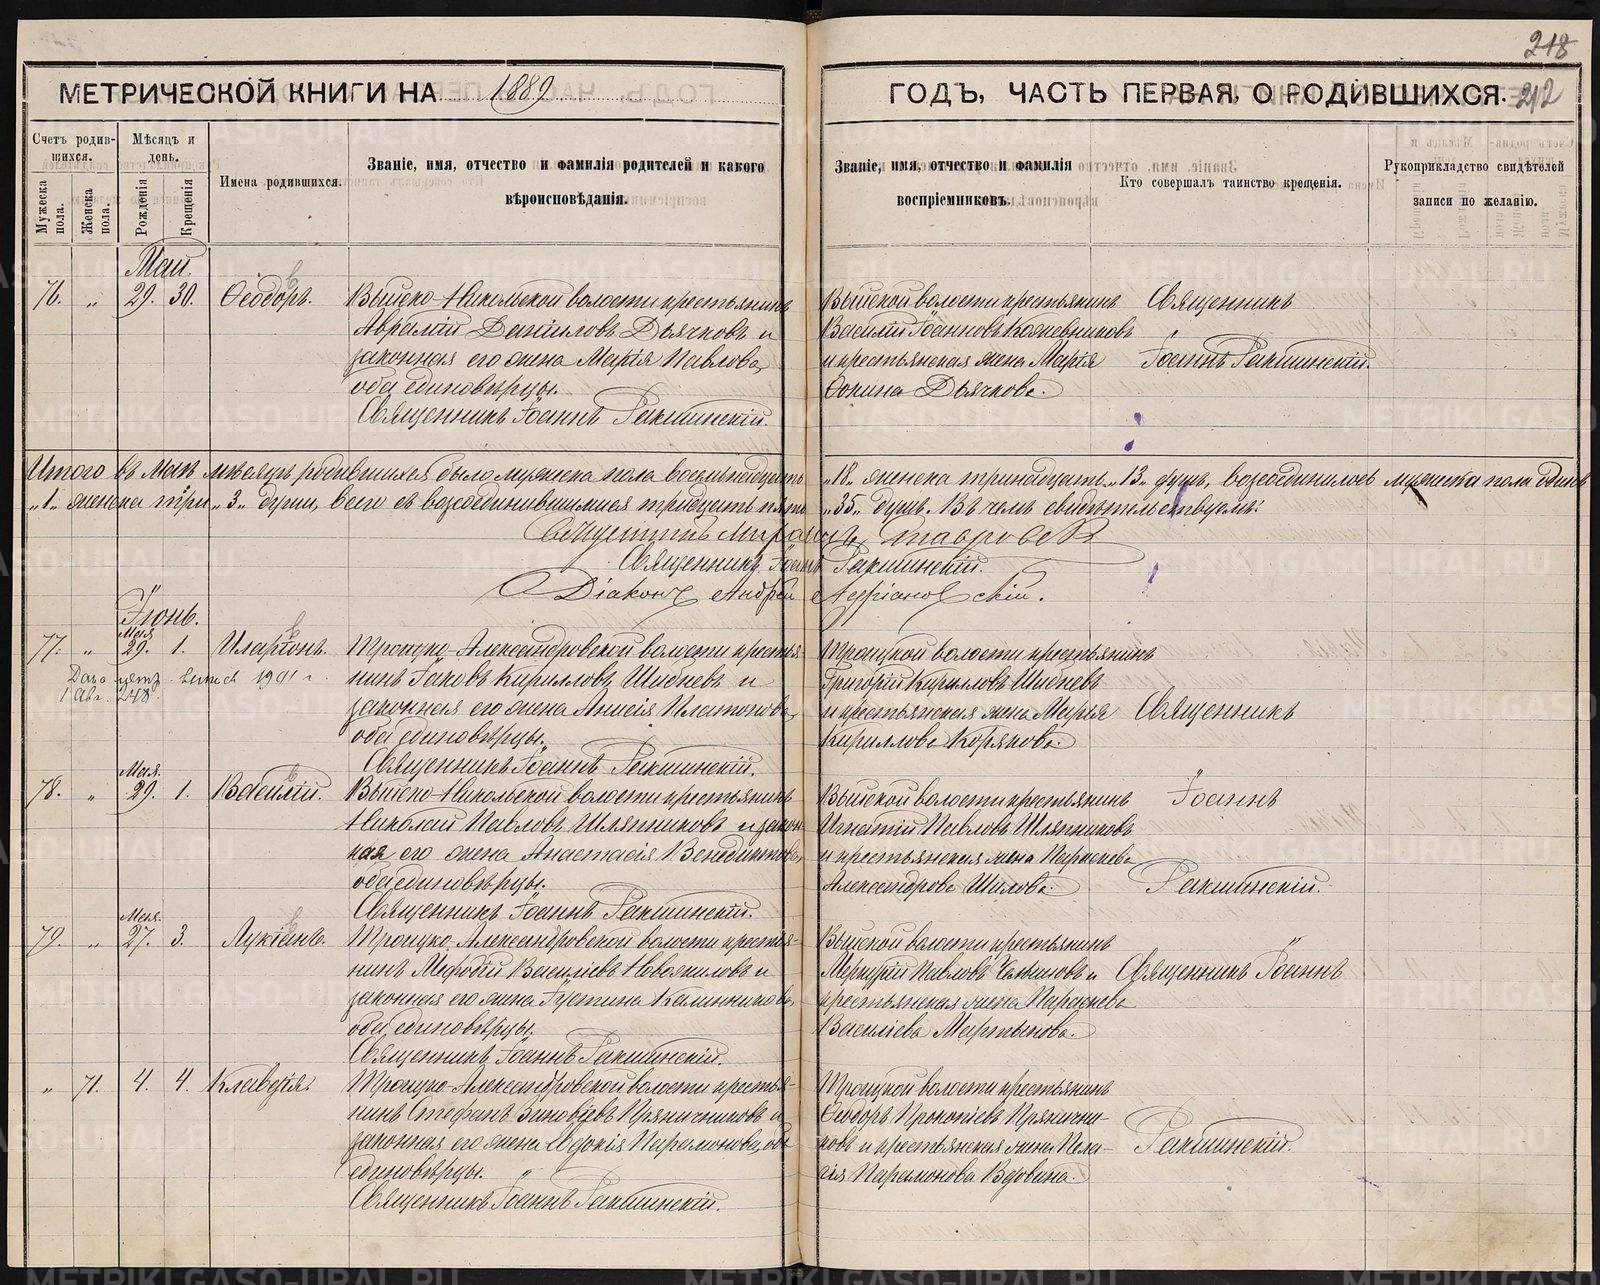 218
МЕТРИЧЕСКОЙ КНИГИ НА 1889
ГОДЪ, ЧАСТЬ ПЕРВАЯ, О РОДИВШИХСЯ. 212
Счетъ родившихся.
Мужеска пола.
Женска пола.
Мѣсяцъ и день.
Рожденія
Крещенія
Имена родившихся.
Званіе, имя, отчество и фамилія родителей и какого
вѣроисповѣданія.
Званіе, имя, отчество и фамилія
воспріемниковъ.
Кто совершалъ таинство крещенія.
Рукоприкладство свидѣтелей
записи по желанію.
Май.
76. „ 29. 30. Ѳеодоръ.
Выйско-Никольской волости крестьянинъ
Аврамій Даніиловъ Дьячковъ и
законная его жена Марія Павлова,
оба единовѣрцы.
Священникъ Іоаннъ Ракшинскій.
Выйской волости крестьянинъ
Василій Іоанновъ Кожевниковъ
и крестьянская жена Марія
Ѳокина Дьячкова.
Священникъ
Іоаннъ Ракшинскій.
Итого въ Маѣ мѣсяцѣ родившихся было мужеска пола восемьнадцать „18„ женска тринадцать „13„ душъ, возсоединилось мужеска пола одинъ
„1„ женска три „3„ души, всего съ возсоединившимися тридцать пять „35„ душъ. Въ чемъ свидѣтельствуемъ:
Священникъ Іоаннъ Ракшинскій.
Діаконъ Андрей Адріановскій.
Іюнь.
77. „ Мая 29. 1. Иларіонъ.
1901 г.
1 Авг. 248
Троицко-Александровской волости крестья-
нинъ Іаковъ Кирилловъ Шибневъ и
законная его жена Анисія Платонова,
оба единовѣрцы.
Священникъ Іоаннъ Ракшинскій.
Троицкой волости крестьянинъ
Григорій Кирилловъ Шибневъ
и крестьянская жена Марія
Кириллова Корякова.
Священникъ
78. „ Мая. 29. 1. Василій.
Выйско-Никольской волости крестьянинъ
Николай Павловъ Шляпниковъ и закон-
ная его жена Анастасія Венедиктова,
оба единовѣрцы.
Священникъ Іоаннъ Ракшинскій.
Выйской волости крестьянинъ
Игнатій Павловъ Шляпниковъ
и крестьянская жена Параскева
Александрова Шилова.
Іоаннъ
Ракшинскій.
79. „ Мая. 27. 3. Лукіанъ.
Троицко-Александровской волости крестья-
нинъ Меѳодій Василіевъ Новожиловъ и
законная его жена Іустина Калинникова,
оба единовѣрцы.
Священникъ Іоаннъ Ракшинскій.
Выйской волости крестьянинъ
Меркурій Павловъ и
крестьянская жена Параскева
Василіева Мартынова.
Священникъ Іоаннъ
„ 71. 4. 4. Клавдія.
Троицко-Александровской волости крестья-
нинъ Стефанъ Зиновіевъ Пряничниковъ и
законная его жена Евдокія Парамонова, оба
единовѣрцы.
Священникъ Іоаннъ Ракшинскій.
Троицкой волости крестьянинъ
Ѳеодоръ Прокопіевъ Пряничн-
ковъ и крестьянская жена Пела-
гія Парамонова Вдовина.
Ракшинскій.